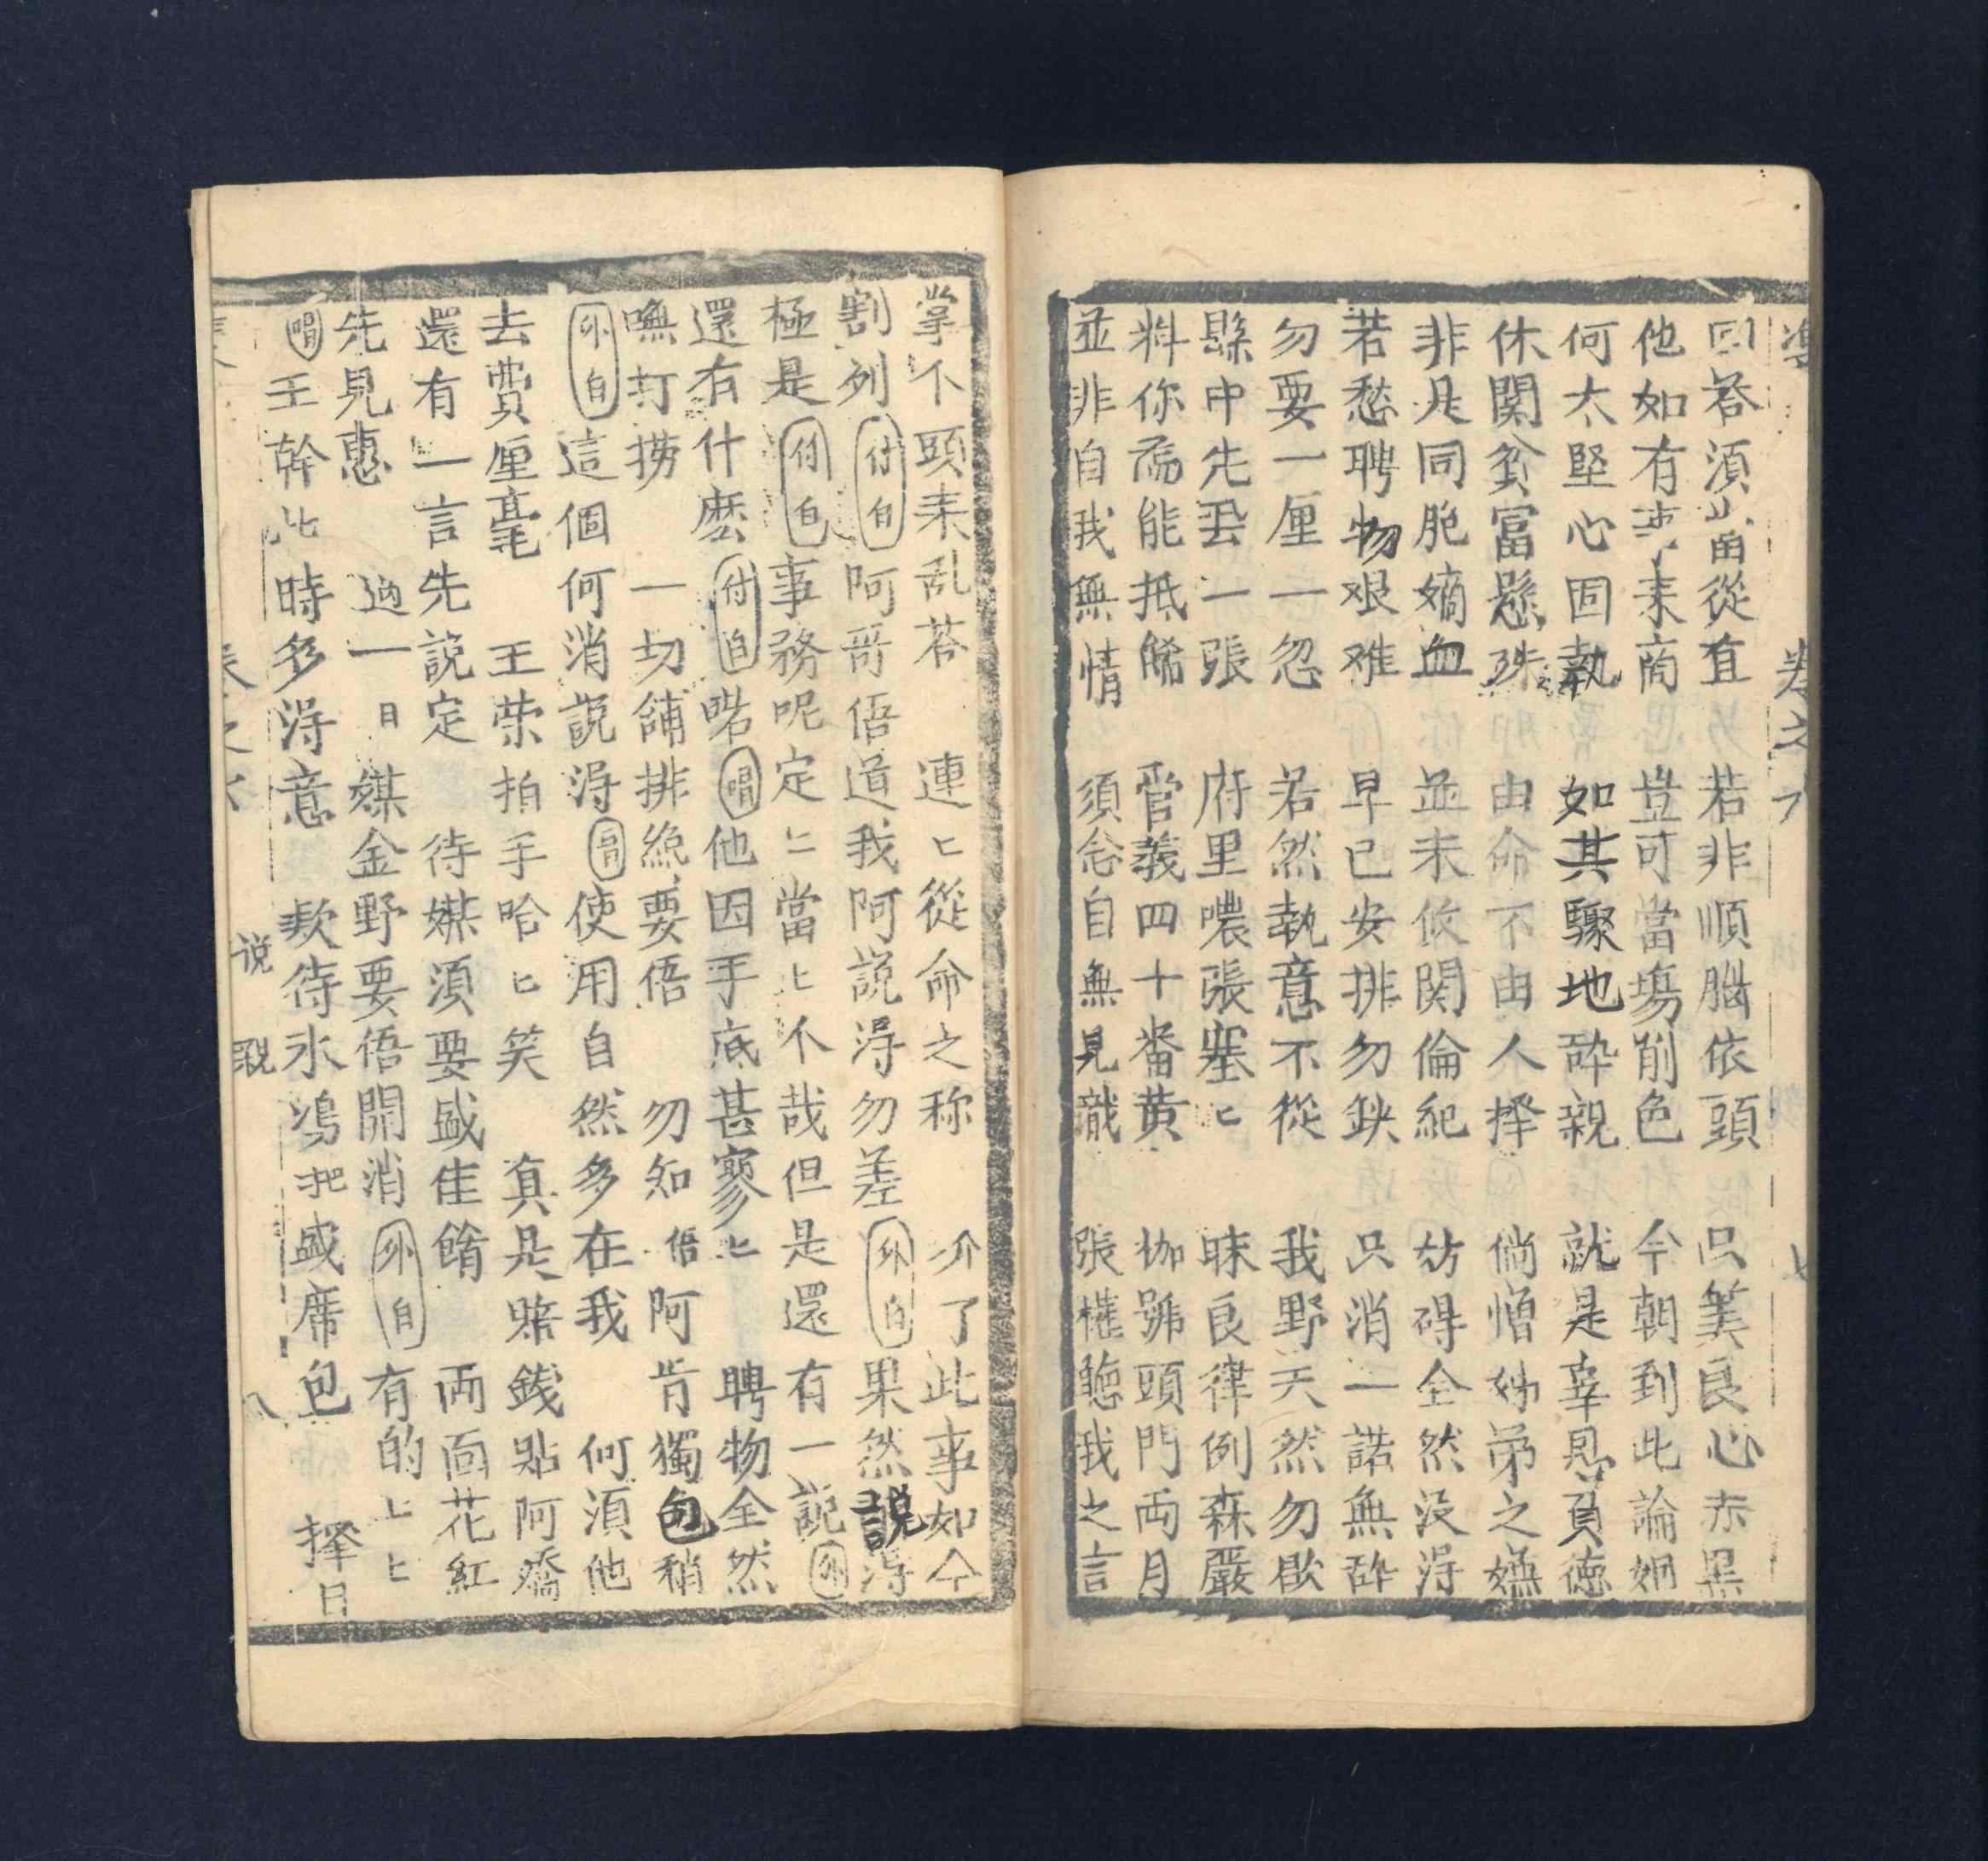 回答須當從直 若非順腦依頭 只筭良心赤黑
他如有事来商 豈可當塲削色 今朝到此論姻
何太堅心固執 如其驟地辞親 就是辜恩負德
休関貧富懸殊 由命不由人擇 倘憎姊弟之嫌
非是同胞嫡血 並未攸関倫紀 妨碍全然没淂
若愁聘物艰难 早已安排勿缺 只消一諾無辞
勿要一厘一忽 若然執意不從 我野天然勿歇
縣中先丟一張 府里噥張塞匕 昧良律例森嚴
料你焉能抵飾 官義四十番黄 枷號頭門両月
並非自我無情 須念自無見識 張權聽我之言
卷之六
七
掌不頭来乱荅 連匕從命之称 介了此事如今
割列 付白 阿哥俉道我阿説淂勿差 外白 果然説淂
極是 付白 事務呢定匕當匕不哉但是還有一説 外
還有什麽 付白 喏 唱 他因手底甚寥匕 聘物全然
嘸打撈 一切舖排総要俉 勿知俉阿肯獨包稍
外白 這個何消説淂 唱 使用自然多在我 何須他
去費厘毫 王荣拍手哈匕笑 真是賠錢貼阿矞
還有一言先説定 待媒須要盛佳餚 両面花紅
先見惠 過一日媒金野要俉開消 外白 有的匕匕
唱 王幹此時多淂意 欵待氷鴻把盛席包 擇日
卷之六
説
八